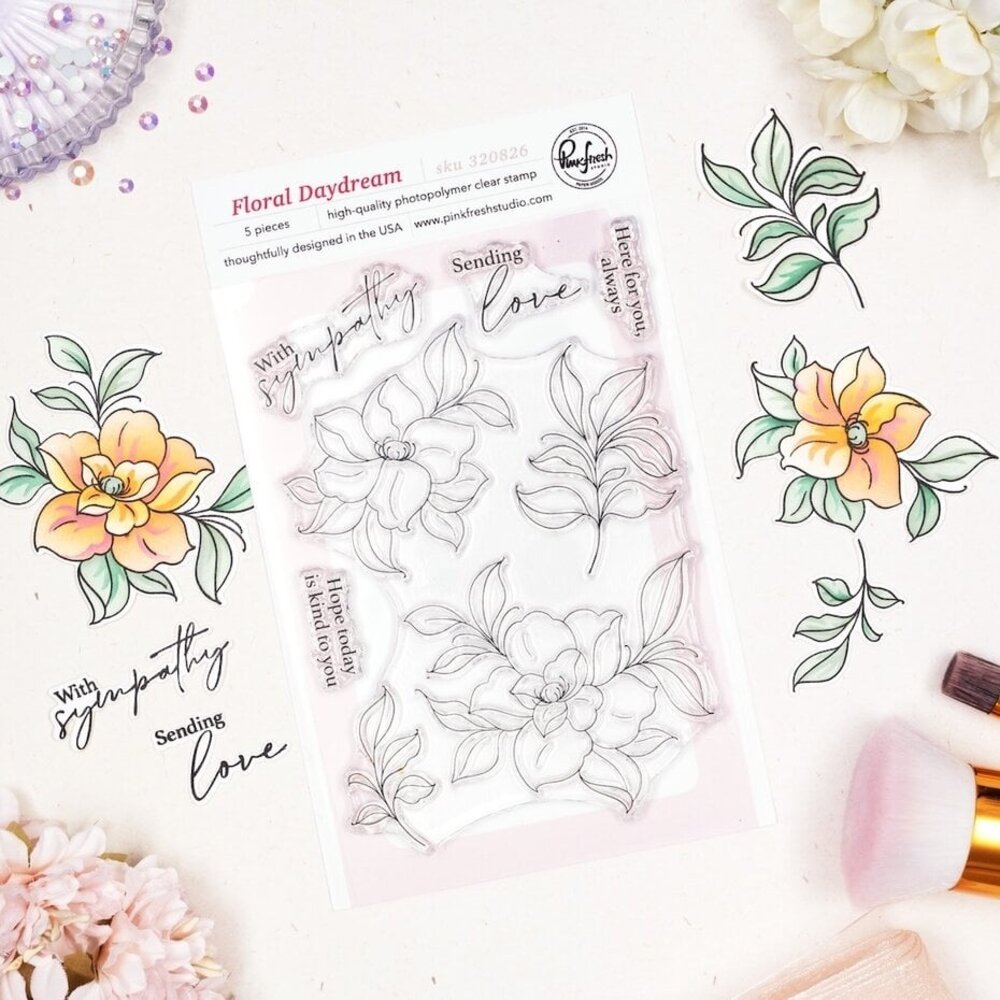 Floral Daydream
sku 320826
EST. 2014
Pinkfresh
STUDIO
5 pieces
high-quality photopolymer clear stamp
thoughtfully designed in the USA
www.pinkfreshstudio.com
With
sympathy
Sending
love
Here for you,
always
Hope today
is kind to you
With
sympathy
Sending
love